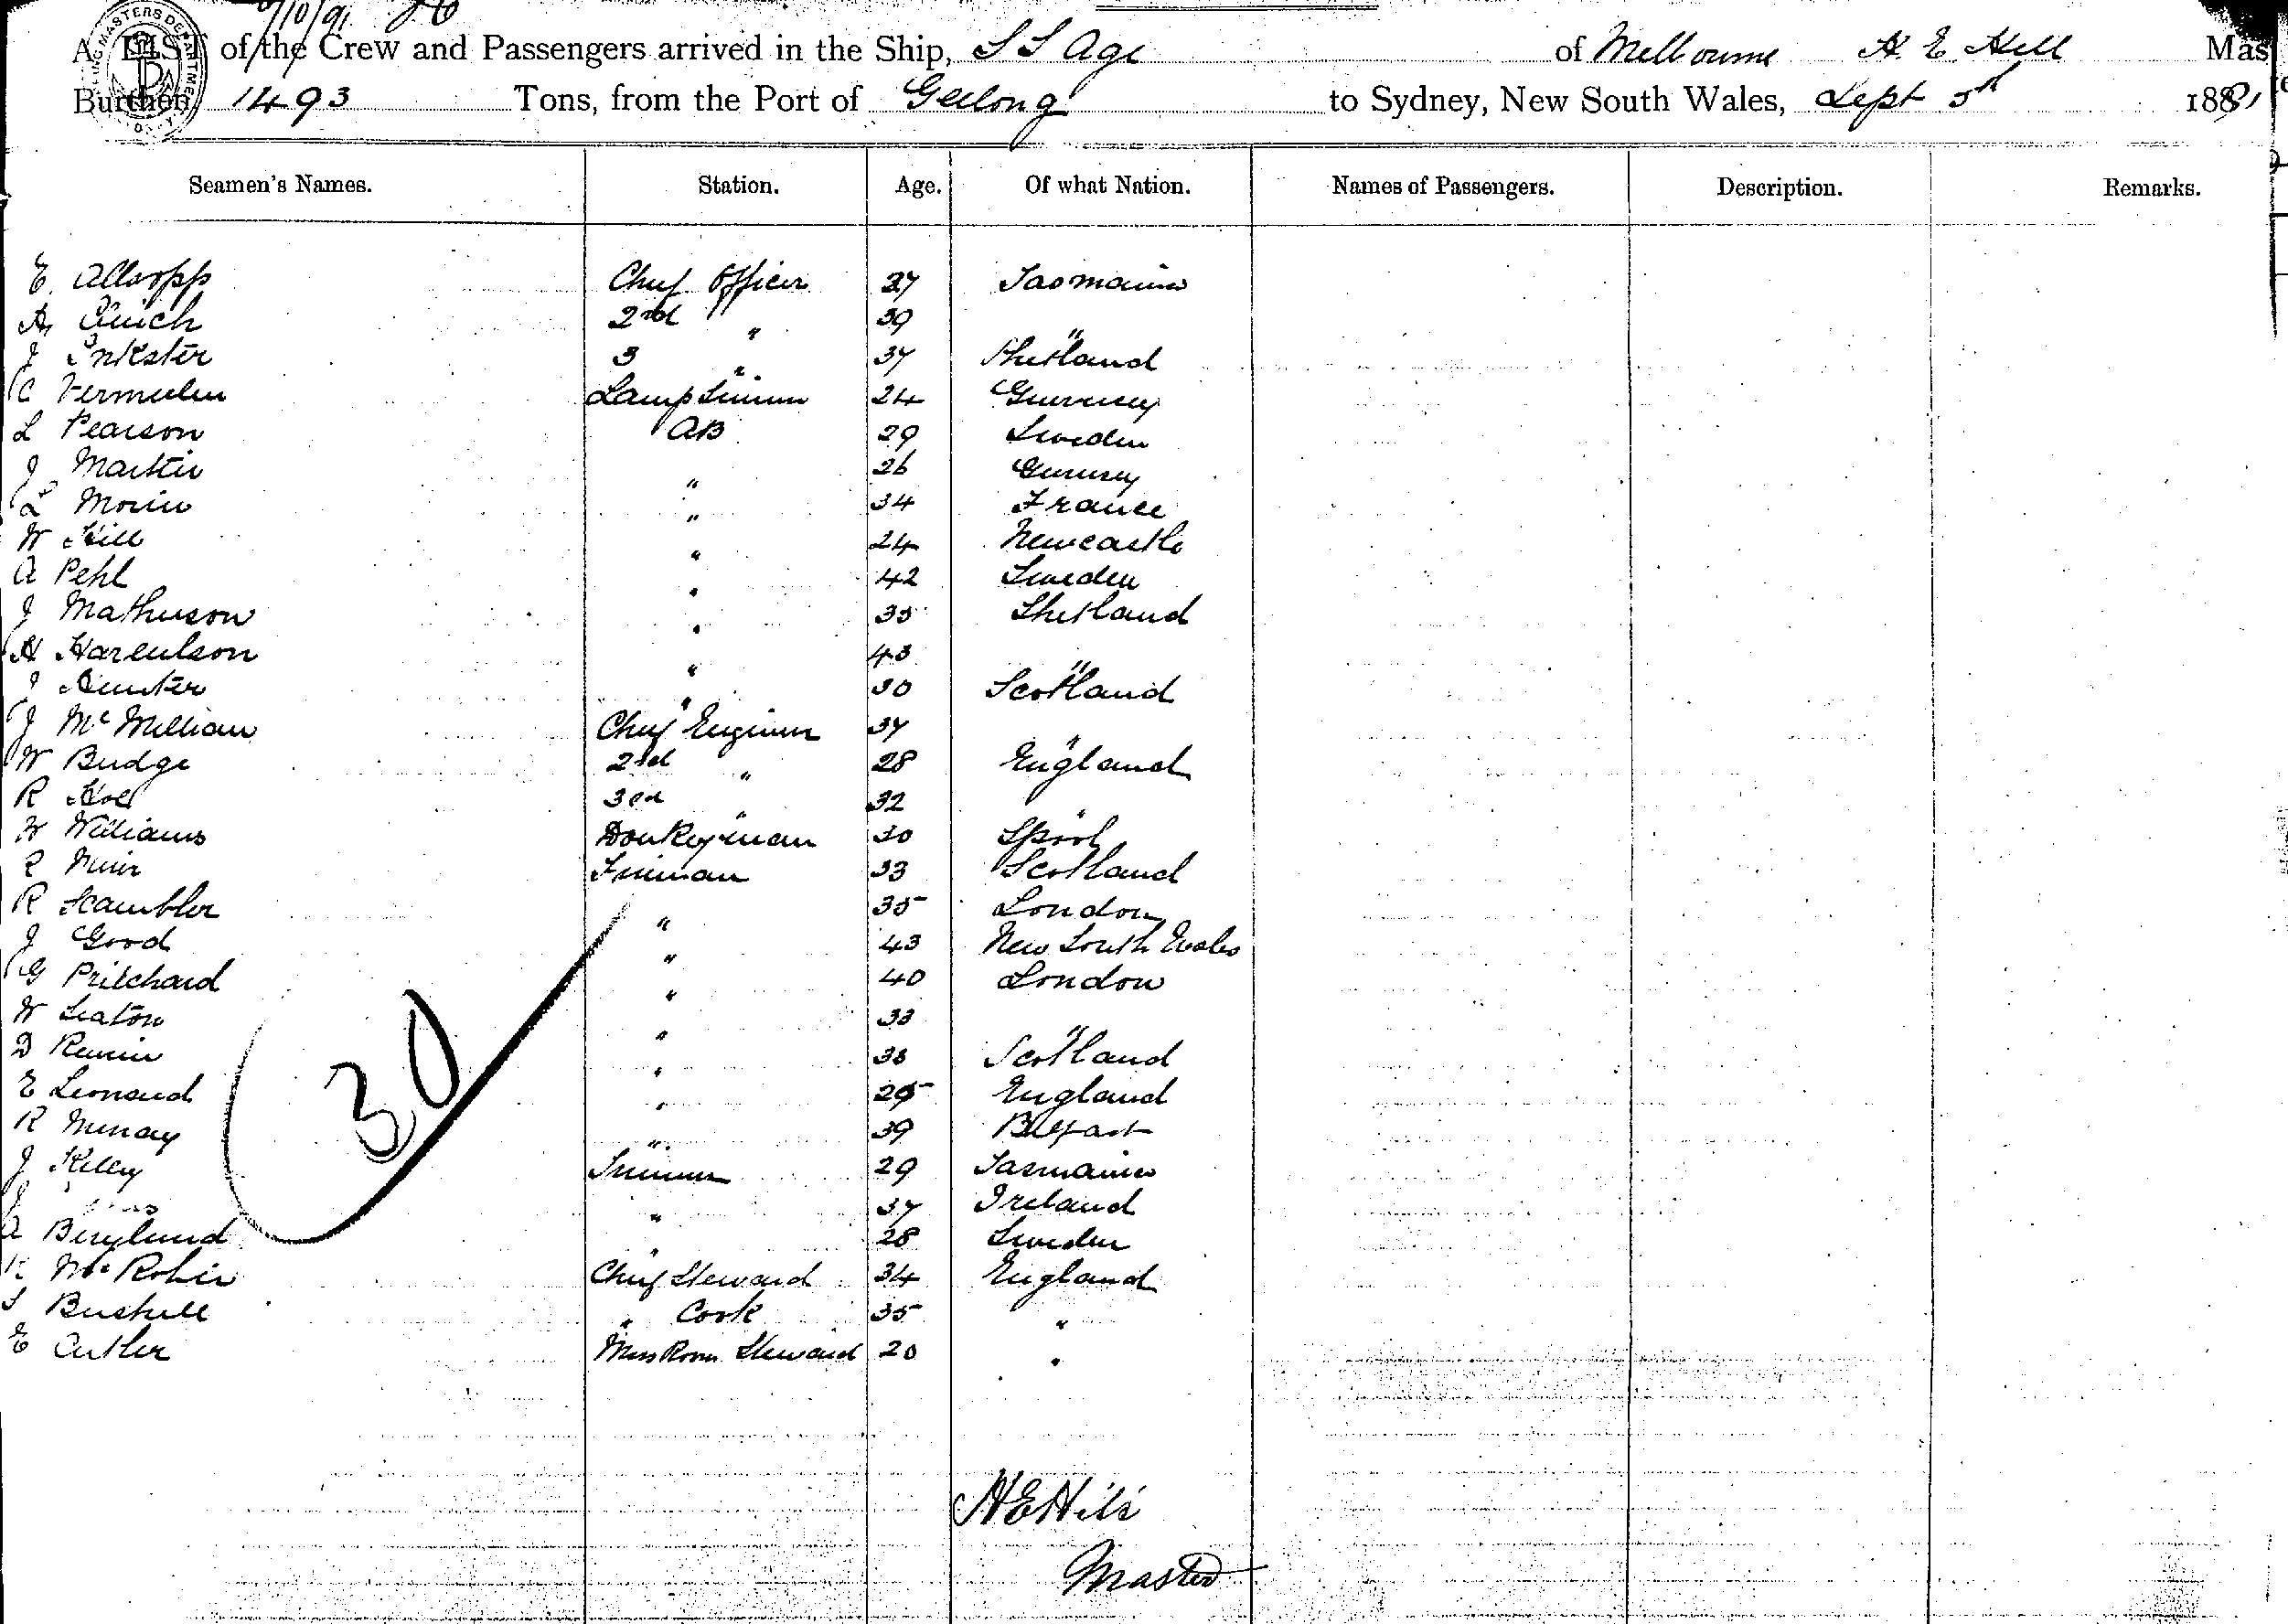 /10/91
A LIST of the Crew and Passengers arrived in the Ship, S S Age of Melbourne H. E. Hill Mas
Burthen 1493 Tons, from the Port of Geelong to Sydney, New South Wales, Sept 5th 1891
Seamen's Names. Station. Age. Of what Nation. Names of Passengers. Description. Remarks.
E. Allsopp Chief Officer 27 Tasmania
A 2nd " 39 "
J Inkster 3 " 37 Shetland
C Vermeulen Lamp Trimmer 24 Guernsey
L Pearson AB 29 Sweden
J Martin " 26 Guernsey
L Morin " 34 France
W Hill " 24 Newcastle
A Pehl " 42 Sweden
J Mathieson " 35 Shetland
H " 43 "
J Hunter " 30 Scotland
J McMillian Chief Engineer 37 "
W Budge 2nd " 28 England
R 3rd " 32
W Williams Donkeyman 30 Lpool
R Muir Fireman 33 Scotland
R Scambler " 35 London
J Good " 43 New South Wales
G Pritchard " 40 London
W Seaton " 33 "
D Rennie " 38 Scotland
E Leonard " 25 England
R Murray " 39 Belfast
J Kelly Trimmer 29 Tasmania
J " 37 Ireland
A Berglund " 28 Sweden
McRobie Chief Steward 34 England
Bushell " Cook 35 "
E Cutler Mess Room Steward 20 "
30
H E Hill
Master